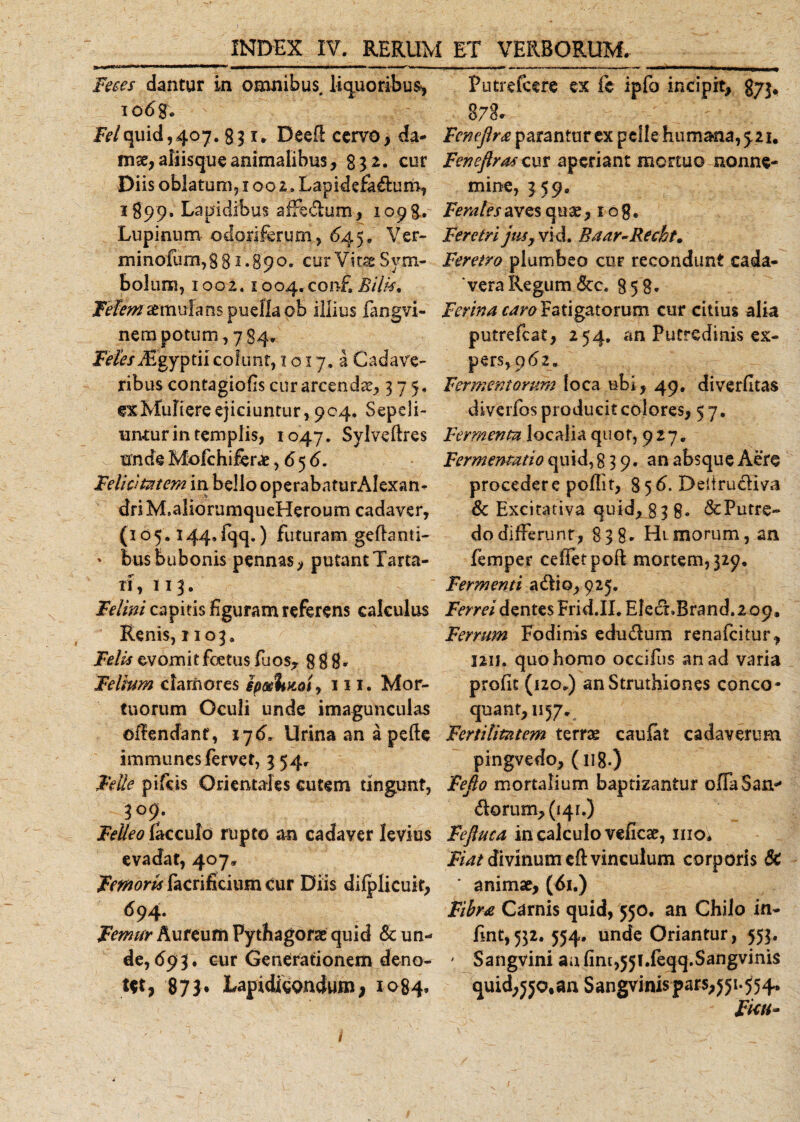 INDEX IV. RERUM ET VERBORUM.
Feces dantur in omnibus liquoribus,
1068.
Fel quid, 407. 831. Deest cervo, da-
mæ, aliisque animalibus, 832. cur
Diis oblatum, 1002. Lapidefactum,
1899. Lapidibus affectum, 1098.
Lupinum odoriferum, 645. Ver-
minosum, 881. 890. cur Vitæ Sym-
bolum, 1002. 1004. conf. Bilis.
Felem æmulans puella ob illius sangvi-
nem potum, 784.
Feles Ægyptii colunt, 1017. à Cadave-
ribus contagiosis cur arcendæ, 375.
ex Muliere ejiciuntur, 904. Sepeli-
untur in templis, 1047. Sylvestres
unde Moschiferæ, 656.
Felicitatem in bello operabatur Alexan-
dri M. aliorumque Heroum cadaver,
(105. 144. sqq.) futuram gestanti-
bus bubonis pennas, putant Tarta-
ri, 113.
Felini capitis figuram referens calculus
Renis, 1103.
Felis evomit fœtus suos, 888.
Felium clamores ἐρωτικοί, 111. Mor-
tuorum Oculi unde imagunculas
ostendant, 176. Urina an à peste
immunes servet, 354.
Felle piscis Orientales cutem tingunt,
309.
Felleo sacculo rupto an cadaver levius
evadat, 407.
Femoris sacrificium cur Diis displicuit,
694.
Femur Aureum Pythagoræ quid & un-
de, 693. cur Generationem deno-
tet, 873. Lapidicondum, 1084.
Putrescere ex se ipso incipit, 873.
878.
Fenestræ parantur ex pelle humana, 521.
Fenestras cur aperiant mortuo nonne-
mine, 359.
Ferales aves quæ, 108.
Feretri jus, vid. Baar-Recht.
Feretro plumbeo cur recondunt cada-
vera Regum &c. 858.
Ferina caro Fatigatorum cur citius alia
putrescat, 254. an Putredinis ex-
pers, 962.
Fermentorum loca ubi, 49. diversitas
diversos producit colores, 57.
Fermenta localia quot, 927.
Fermentatio quid, 839. an absque Aëre
procedere possit, 856. Destructiva
& Excitativa quid, 838. & Putre-
do differunt, 838. Humorum, an
semper cesset post mortem, 329.
Fermenti actio, 925.
Ferrei dentes Frid. II. Elect. Brand. 209.
Ferrum Fodinis eductum renascitur,
1211. quo homo occisus an ad varia
prosit (120.) an Struthiones conco-
quant, 1157.
Fertilitatem terræ causat cadaverum
pingvedo, (118.)
Festo mortalium baptizantur ossa San-
ctorum, (141.)
Festuca in calculo vesicæ, 1110.
Fiat divinum est vinculum corporis &
animæ, (61.)
Fibra Carnis quid, 550. an Chilo in-
sint, 532. 554. unde Oriantur, 553.
Sangvini an sint, 551. seqq. Sangvinis
quid, 550. an Sangvinis pars, 551. 554.
Ficu-